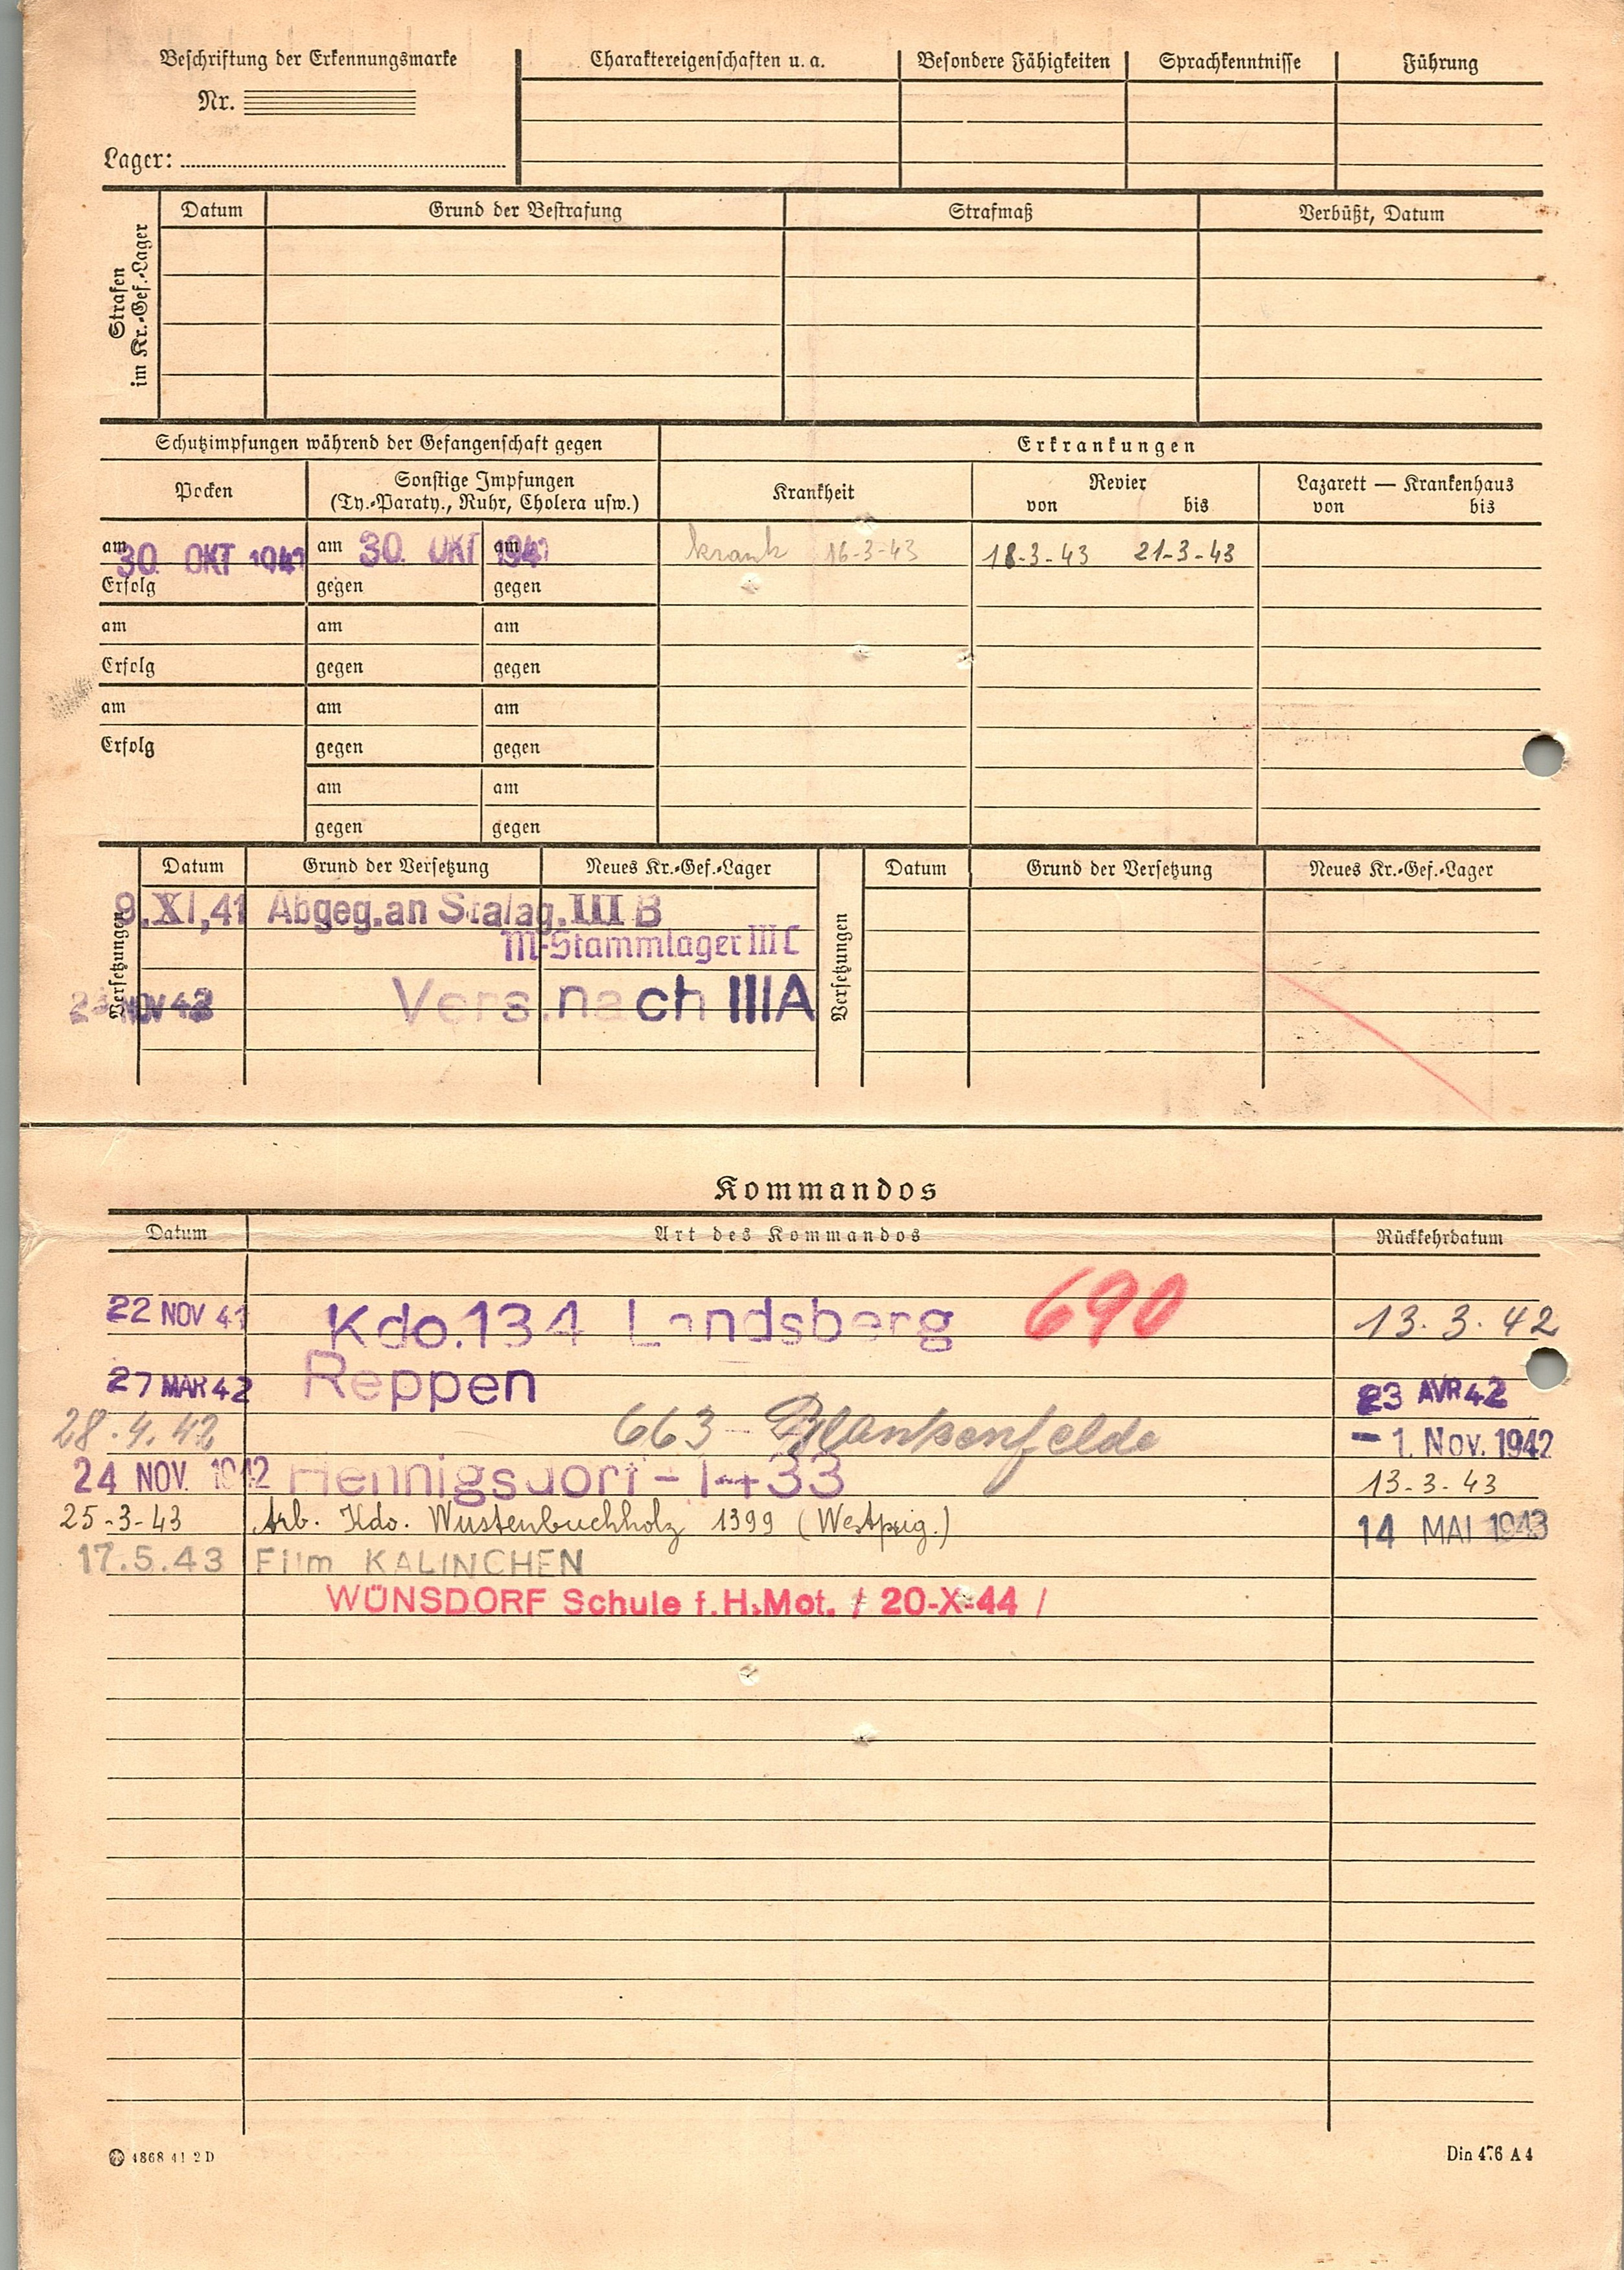 Beschriftung der Erkennungsmarke
Nr.
Lager:
Charaktereigenschaften u. a. Besondere Fähigkeiten Sprachkenntnisse Führung
Strafen
im Kr.-Gef.-Lager
Datum Grund der Bestrafung Strafmaß Verbüßt, Datum
Schutzimpfungen während der Gefangenschaft gegen Erkrankungen
Pocken Sonstige Impfungen Krankheit Revier Lazarett — Krankenhaus
(Ty.-Paraty., Ruhr, Cholera usw.) von bis von bis
am 30. OKT 1941 am 30. OKT 1941 am krank 16-3-43 18-3-43 21-3-43
Erfolg gegen gegen
am am am
Erfolg gegen gegen
am am am
Erfolg gegen gegen
am am
gegen gegen
Versetzungen Datum Grund der Versetzung Neues Kr.-Gef.-Lager Versetzungen Datum Grund der Versetzung Neues Kr.-Gef.-Lager
9.XI,41 Abgeg.an Stalag.III B
M-Stammlager III C
NOV 42 Vers.nach IIIA
Kommandos
Datum Art des Kommandos Rückkehrdatum
22 NOV 41 Kdo.134 Landsberg 690 13.3.42
27 MAR 42 Reppen 23 AVR 42
28.4.42 663 - Blankenfelde - 1. Nov. 1942
24 NOV. 1942 Hennigsdorf - 1433 13-3-43
25-3-43 Arb. Kdo. Wustenbuchholz 1399 (Westprig.) 14 MAI 1943
17.5.43 Film KALINCHEN
WÜNSDORF Schule f.H.Mot. / 20-X-44 /
4868 41 2 D Din 476 A 4